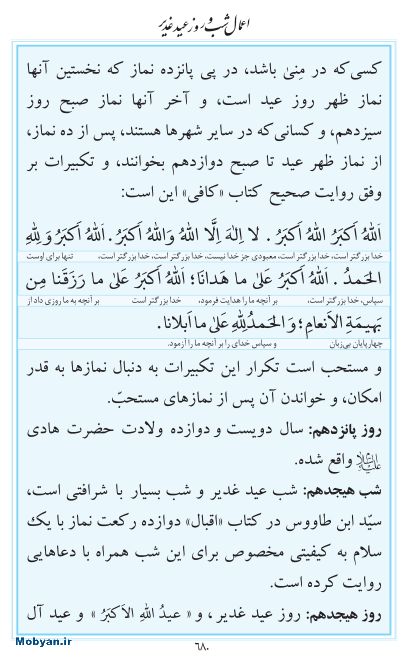 اعمال شب و روز عید غدیر
کسی که در مِنیٰ باشد، در پی پانزده نماز که نخستین آنها
نماز ظهر روز عید است، و آخر آنها نماز صبح روز
سیزدهم، و کسانی که در سایر شهرها هستند، پس از ده نماز،
از نماز ظهر عید تا صبح دوازدهم بخوانند، و تکبیرات بر
وفق روایت صحیح کتاب «کافی» این است:
اَللهُ اَکبَرُ اَللهُ اَکبَرُ . لا اِلهَ اِلَّا اللهُ وَاللهُ اَکبَرُ . اَللهُ اَکبَرُ وَلِلّٰهِ
خدا بزرگتر است، خدا بزرگتر است، معبودی جز خدا نیست، خدا بزرگتر است، خدا بزرگتر است، تنها برای اوست
الحَمدُ . اَللهُ اَکبَرُ عَلیٰ ما هَدانا؛ اَللهُ اَکبَرُ عَلیٰ ما رَزَقَنا مِن
سپاس، خدا بزرگتر است، بر آنچه ما را هدایت فرمود، خدا بزرگتر است بر آنچه به ما روزی داد از
بَهیمَةِ الاَنعامِ؛ وَ الحَمدُلِلّٰهِ عَلیٰ ما اَبلانا.
چهارپایان بی‌زبان و سپاس خدای را بر آنچه ما را آزمود.
و مستحب است تکرار این تکبیرات به دنبال نمازها به قدر
امکان، و خواندن آن پس از نمازهای مستحبّ.
روز پانزدهم: سال دویست و دوازده ولادت حضرت هادی
علیه‌السلام واقع شده.
شب هیجدهم: شب عید غدیر و شب بسیار با شرافتی است،
سیّد ابن طاووس در کتاب «اقبال» دوازده رکعت نماز با یک
سلام به کیفیتی مخصوص برای این شب همراه با دعاهایی
روایت کرده است.
روز هیجدهم: روز عید غدیر، و «عیدُ اللهِ الاَکبَرُ» و عید آل
۶۸۰
Mobyan.ir